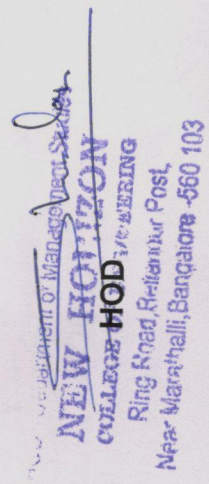 Department of Management Studies
NEW HORIZON
COLLEGE OF ENGINEERING
HOD
Ring Road, Bellandur Post,
Near Marathalli, Bangalore -560 103